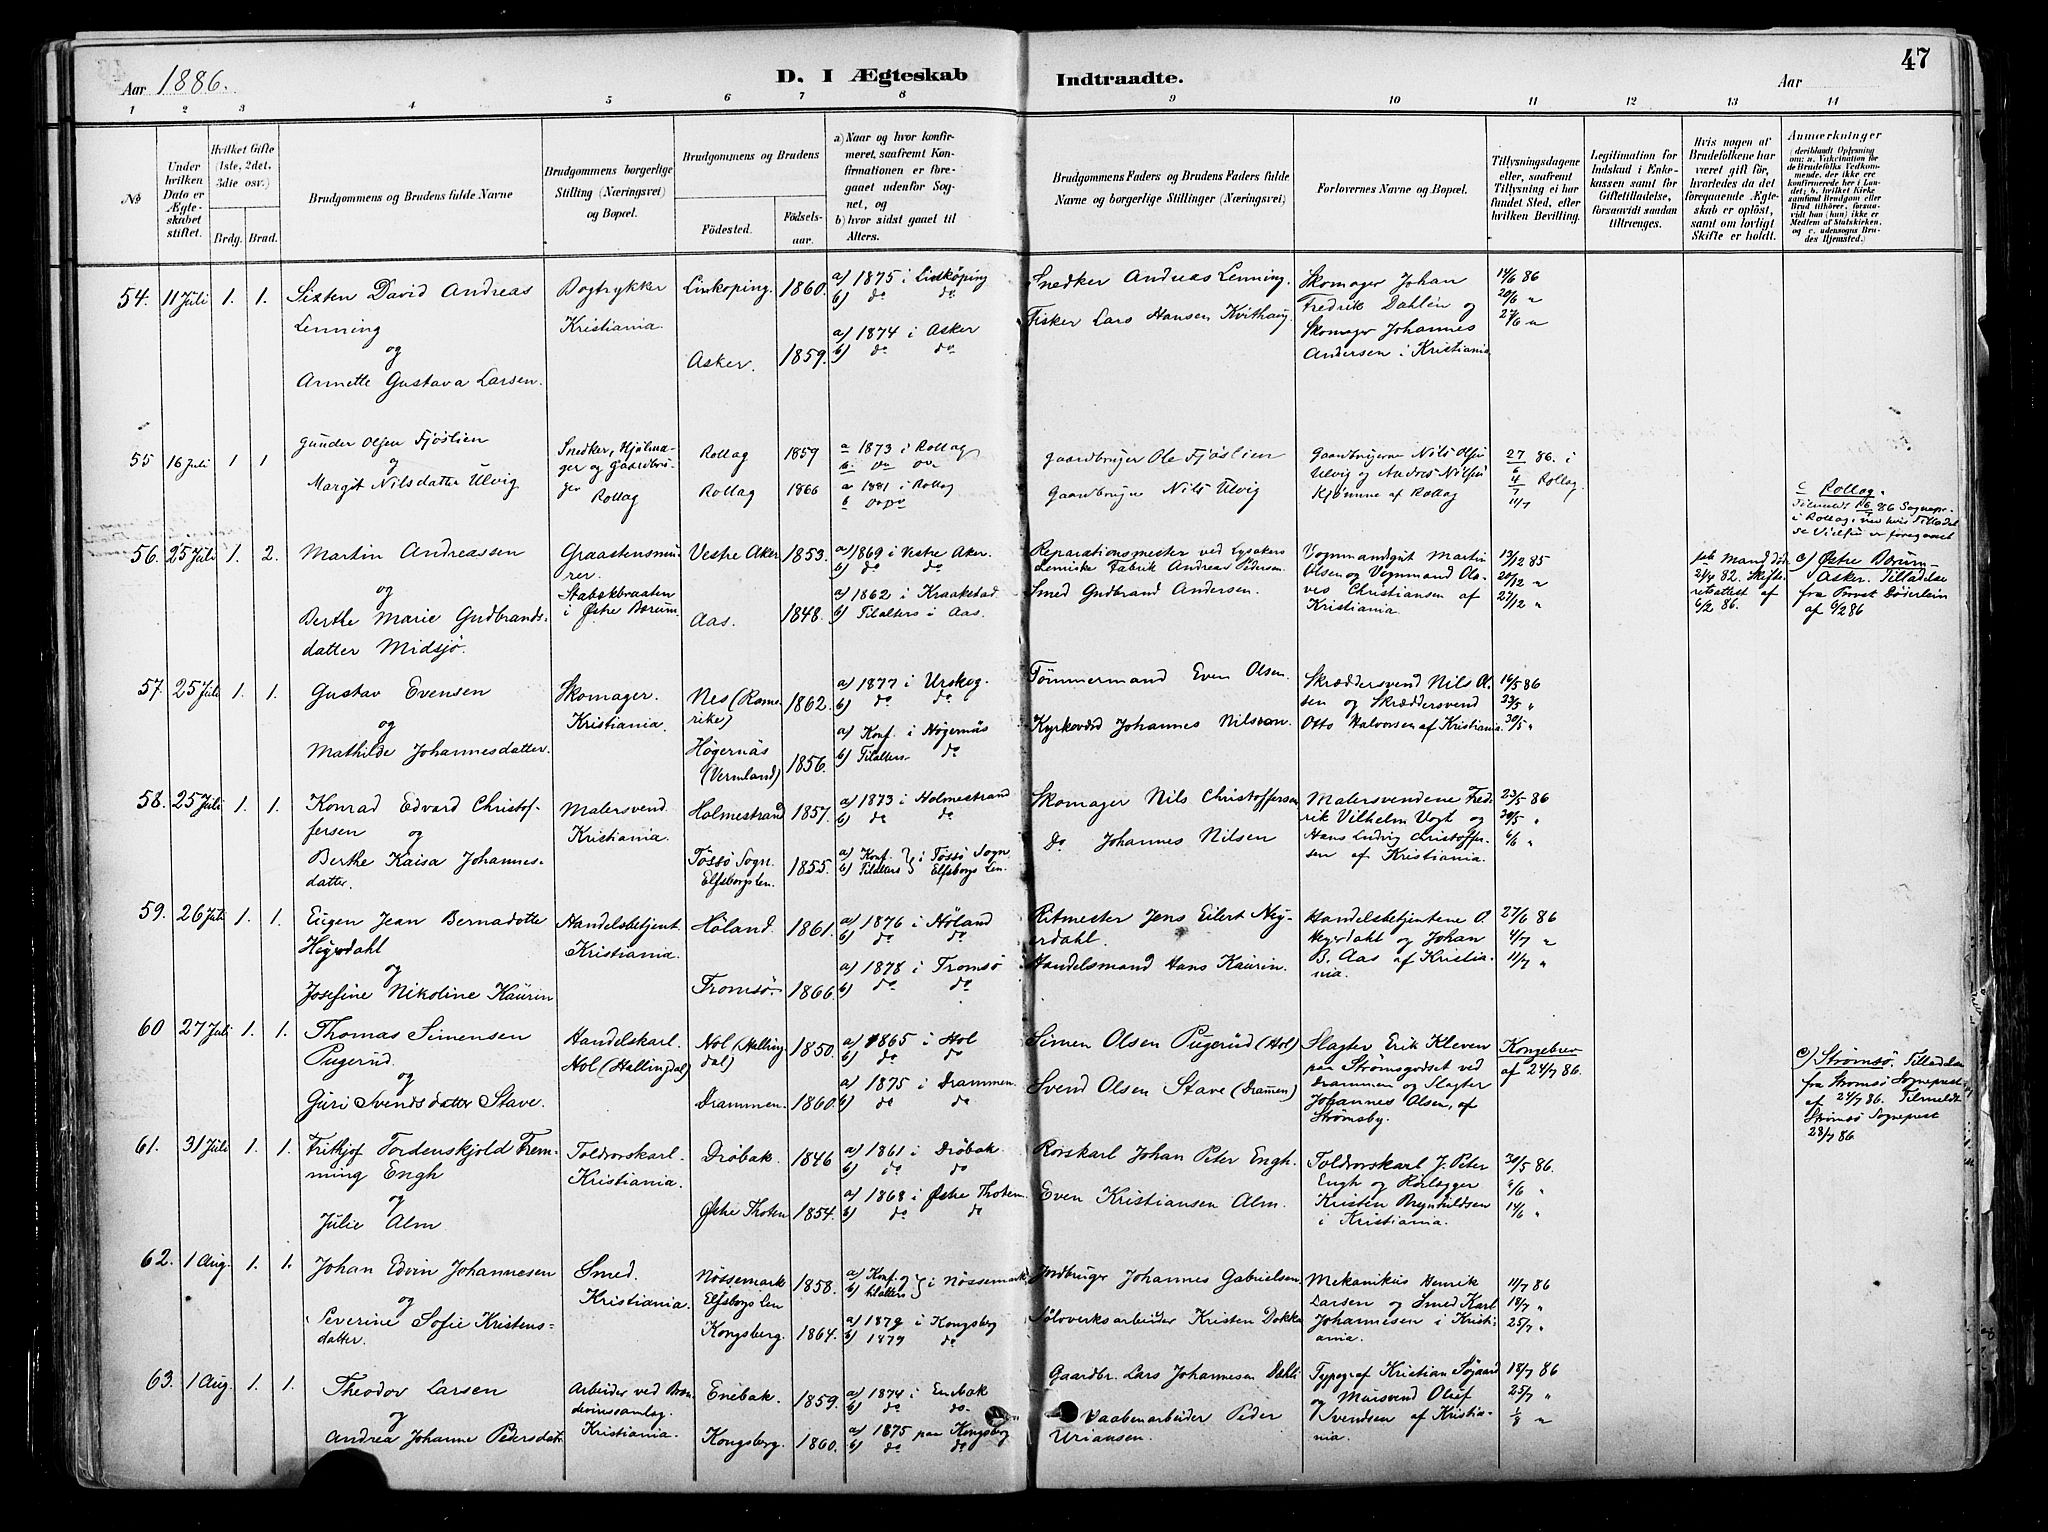 47
Aar 1886.
D. I Ægteskab Indtraadte.
Aar
1 2 3 4 5 6 7 8 9 10 11 12 13 14
No
Under hvilken Dato er Ægteskabet stiftet.
Hvilket Gifte (1ste, 2det, 3die osv.)
Brdg. Brud.
Brudgommens og Brudens fulde Navne
Brudgommens borgerlige Stilling (Næringsvei) og Bopæl.
Brudgommens og Brudens
Fødested. Fødselsaar.
a) Naar og hvor konfirmeret, saafremt Konfirmationen er foregaaet udenfor Sognet, og
b) hvor sidst gaaet til Alters.
Brudgommens Faders og Brudens Faders fulde Navne og borgerlige Stillinger (Næringsvei)
Forlovernes Navne og Bopæl.
Tillysningsdagene eller, saafremt Tillysning ei har fundet Sted, efter hvilken Bevilling.
Legitimation for Indskud i Enkekassen samt for Giftetilladelse, forsaavidt saadan tiltrænges.
Hvis nogen af Brudefolkene har været gift før, hvorledes da det foregaaende Ægteskab er opløst, samt om lovligt Skifte er holdt.
Anmærkninger (deriblandt Oplysning om: a. Vakcination for de Brudefolks Vedkommende, der ikke ere konfirmerede her i Landet; b. hvilket Kirkesamfund Brudgom eller Brud tilhører, forsaavidt han (hun) ikke er Medlem af Statskirken, og c. udensogns Brudes Hjemsted.)
54. 11 Juli 1. 1. Sixten David Andreas Lenning
og
Annette Gustava Larsen.
Bogtrykker Kristiania.
Linkoping. 1860. a) 1875 i Linköping b) do do
Asker. 1859. a) 1874 i Asker b) do do
Snedker Andreas Lenning.
Fisker Lars Hansen Kvithaug
Skomager Johan Fredrik Dahlén og Skomager Johannes Andersen i Kristiania
14/6 86 20/6 " 27/6 "
55 16 Juli 1 1 Gunder Olsen Fjøslien
og
Margit Nilsdatter Ulvig
Snedker, Hjulmager og Gaardbruger Rollag
Rollag 1859 a 1873 i Rollag b. do do
Rollag 1866 a 1881 i Rollag b do do
Gaardbruger Ole Fjøslien
Gaardbruger Nils Ulvig
Gaardbrugerne Nils Olsen Ulvig og Anders Nilsen Kjømme af Rollag
27/6 86. i 4/7 Rollag. 11/7
c Rollag.
Tilmeldt 86 Sognepr. i Rollag, ved hvis Tilladelse Vielsen er foregaaet
56. 25 Juli 1. 2. Martin Andreassen
og
Berthe Marie Gudbrandsdatter Midsjø.
Graastensmurer. Stabækbraaten i Østre Bærum.
Vestre Aker 1853. a) 1869 i Vestre Aker. b) do do
Aas. 1848. a) 1862 i Kraakstad b) Tilalters i Aas.
Reparationsmester ved Lysakers kemiske Fabrik Andreas Pedersen.
Smed Gudbrand Andersen.
Vognmandsgut Martin Olsen og Vognmand Oloves Christiansen af Kristiania
13/12 85 20/12 " 27/12 "
Mand død 2/4 82. Skifteretsattest af 6/2 86.
c) Østre Bærum-Asker. Tilladelse fra Provst Døderlein af 6/2 86
57. 25 Juli 1. 1. Gustav Evensen
og
Mathilde Johannesdatter.
Skomager. Kristiania.
Nes (Romerike) 1862. a) 1877 i Urskog. b) do do
Högernäs (Vermland) 1856. a) Konf. i Högernäs b) Tilalters do
Tømmermand Even Olsen.
Kyrkovärd Johannes Nilsson.
Skræddersvend Nils Olsen og Skræddersvend Otto Halvorsen af Kristiania.
16/5 86 23/5 " 30/5 "
58. 25 Juli 1. 1. Konrad Edvard Christoffersen
og
Berthe Kaisa Johannesdatter.
Malersvend. Kristiania.
Holmestrand 1857. a) 1873 i Holmestrand b) do do
Tössö Sogn Elfsborgs Len. 1855. a) Konf. b) Tilalters } i Tössö Sogn Elfsborgs Len.
Skomager Nils Christoffersen
Do Johannes Nilsen
Malersvendene Fredrik Vilhelm Vogt og Hans Ludvig Christoffersen af Kristiania.
23/5 86 30/5 " 6/6 "
59. 26 Juli 1. 1. Eugen Jean Bernadotte Heyerdahl
og
Josefine Nikoline Kaurin
Handelsbetjent Kristiania.
Høland. 1861. a) 1876 i Høland b) do do
Tromsø. 1866. a) 1878 i Tromsø b) do do
Ritmester Jens Eilert Heyerdahl.
Handelsmand Hans Kaurin.
Handelsbetjentene O Heyerdahl og Johan B. Aas af Kristiania.
27/6 86 4/7 " 11/7 "
60 27 Juli 1. 1. Thomas Simensen Pugerud.
og
Guri Svendsdatter Stave.
Handelskarl. Hol (Hallingdal)
Hol (Hallingdal) 1850. a) 1865 i Hol b) do do
Drammen. 1860. a) 1875 i Drammen. b) do do
Simen Olsen Pugerud (Hol)
Svend Olsen Stave (Drammen)
Slagter Erik Kleven paa Strømsgodset ved Drammen og Slagter Johannes Olsen, af Strømsby.
Kongebrev af 24/7 86.
c) Strømsø. Tilladelse fra Strømsø Sognepræst af 24/7 86. Tilmeldt Strømsø Sognepræst 28/7 86
61. 31 Juli 1. 1. Frithjof Tordenskjold Fremming Engh
og
Julie Alm
Toldrorskarl. Kristiania.
Drøbak. 1846 a) 1861 i Drøbak b) do do
Østre Thoten 1854. a) 1868 i Østre Thoten b) do do
Rorskarl Johan Peter Engh.
Even Kristiansen Alm.
Toldrorskarl J. Peter Engh og Rørlægger Kristen Brynhildsen i Kristiania.
30/5 86. 6/6 " 14/6 "
62. 1 Aug. 1. 1. Johan Edvin Johannesen
og
Severine Sofie Kristensdatter.
Smed. Kristiania.
Nössemark Elfsborgs Len 1858. a) Konf. og b) tilalters } i Nössemark
Kongsberg. 1864. a) 1879 i Kongsberg b) 1879 do
Jordbruger Johannes Gabrielsen
Sølvverksarbeider Kristen Dokka
Mekanikus Henrik Larsen og Smed Karl Johannesen i Kristiania.
11/7 86 18/7 " 25/7 "
63. 1 Aug. 1. 1. Theodor Larsen
og
Andrea Johanne Pedersdatr.
Arbeider ved Brændevinssamlag. Kristiania.
Enebak. 1859. a) 1874 i Enebak b) do do
Kongsberg. 1860. a) 1875 paa Kongsberg b) do do
Gaardbr. Lars Johannesen Dahli
Vaabenarbeider Peder Uriansen.
Typograf Kristian Søgaard og Mursvend Oluf Svendsen af Kristiania.
18/7 86 25/7 " 1/8 "